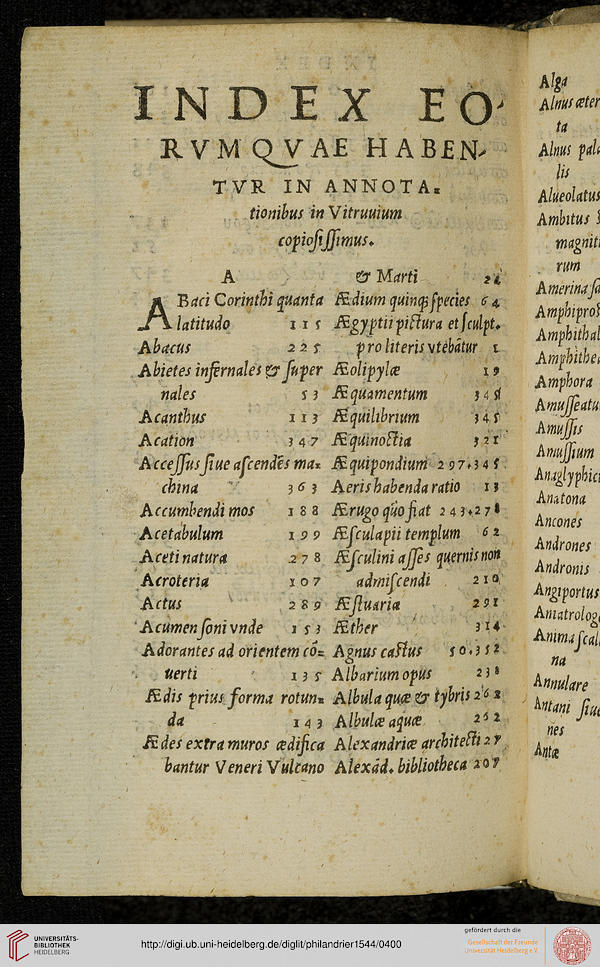 INDEX EO-
RVMQVAE HABEN-
TVR IN ANNOTA=
tionibus in Vitruuium
copiosissimus.
A
ABaci Corinthi quanta
latitudo 115
Abacus 225
Abietes infernales & super
nales 53
Acanthus 113
Acation 347
Accessus siue ascendēs ma=
china 363
Accumbendi mos 188
Acetabulum 199
Aceti natura 278
Acroteria 107
Actus 289
Acumen soni vnde 153
Adorantes ad orientem cō=
uerti 135
Ædis prius forma rotun=
da 143
Ædes extra muros ædifica
bantur Veneri Vulcano
& Marti
Ædium quinq; species 64
Ægyptii pictura et sculpt.
pro literis vtebātur 1
Æolipylæ 19
Æquamentum
Æquilibrium 345
Æquinoctia 321
Æquipondium 297.345
Aeris habenda ratio 13
Ærugo quo fiat 243.278
Æsculapii templum 62
Æsculini asses quernis non
admiscendi 210
Æstuaria 291
Æther 314
Agnus castus 50.352
Albarium opus 238
Albula quæ & tybris 262
Albulæ aquæ 262
Alexandriæ architecti 27
Alexād. bibliotheca 207
Alga
Alnus æter
ta
Alnus pal
lis
Alueolatus
Ambitus
magnit
rum
Amerina sa
Amphipros
Amphithal
Amphithea
Amphora
Amusseatu
Amussis
Amussium
Anaglyphic
Anatona
Ancones
Andrones
Andronis
Angiportus
Aniatrolog
Anima scal
na
Annulare
Antani siue
nes
Antæ
UNIVERSITÄTS-
BIBLIOTHEK
HEIDELBERG
http://digi.ub.uni-heidelberg.de/diglit/philandrier1544/0400
gefördert durch die
Gesellschaft der Freunde
Universität Heidelberg e.V.